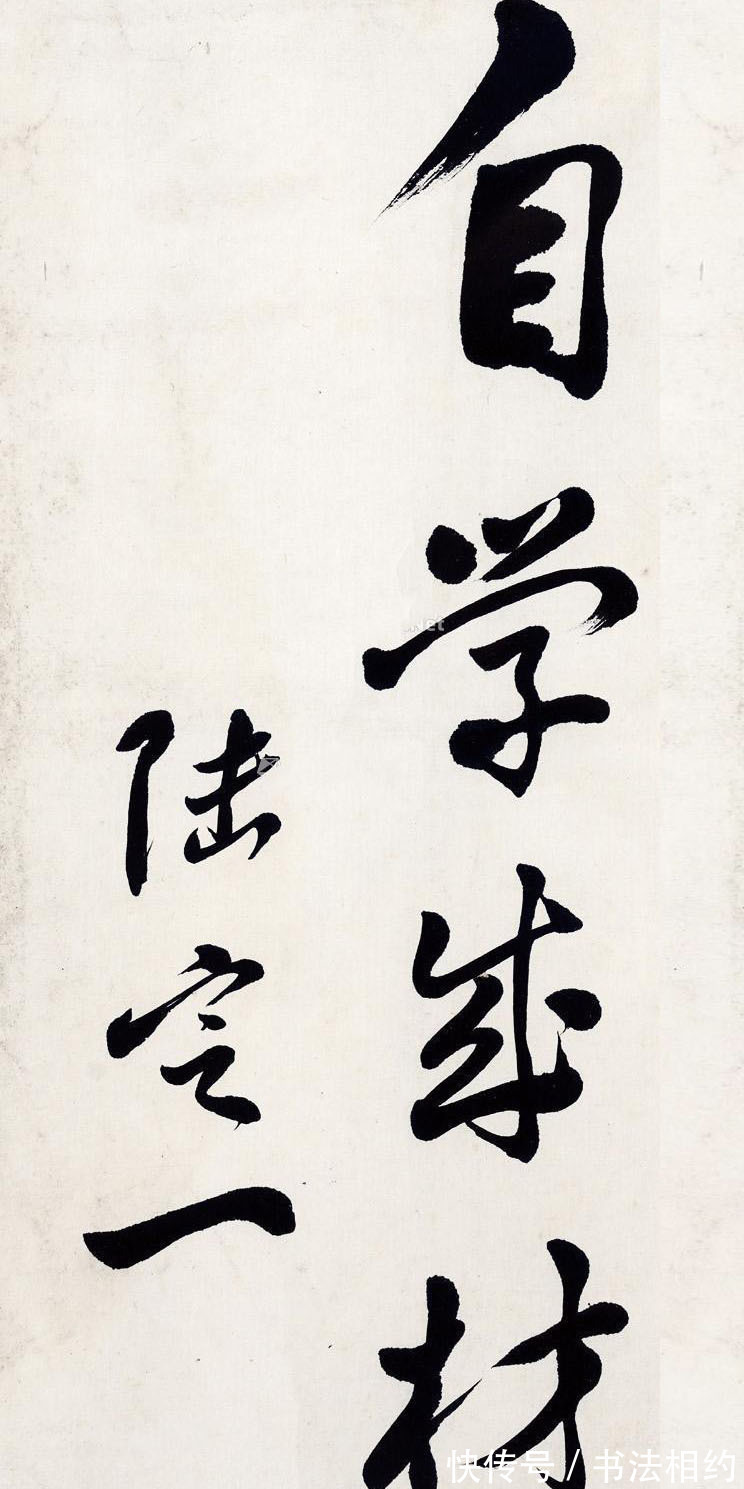 自学成材
陆定一
快传号/书法相约